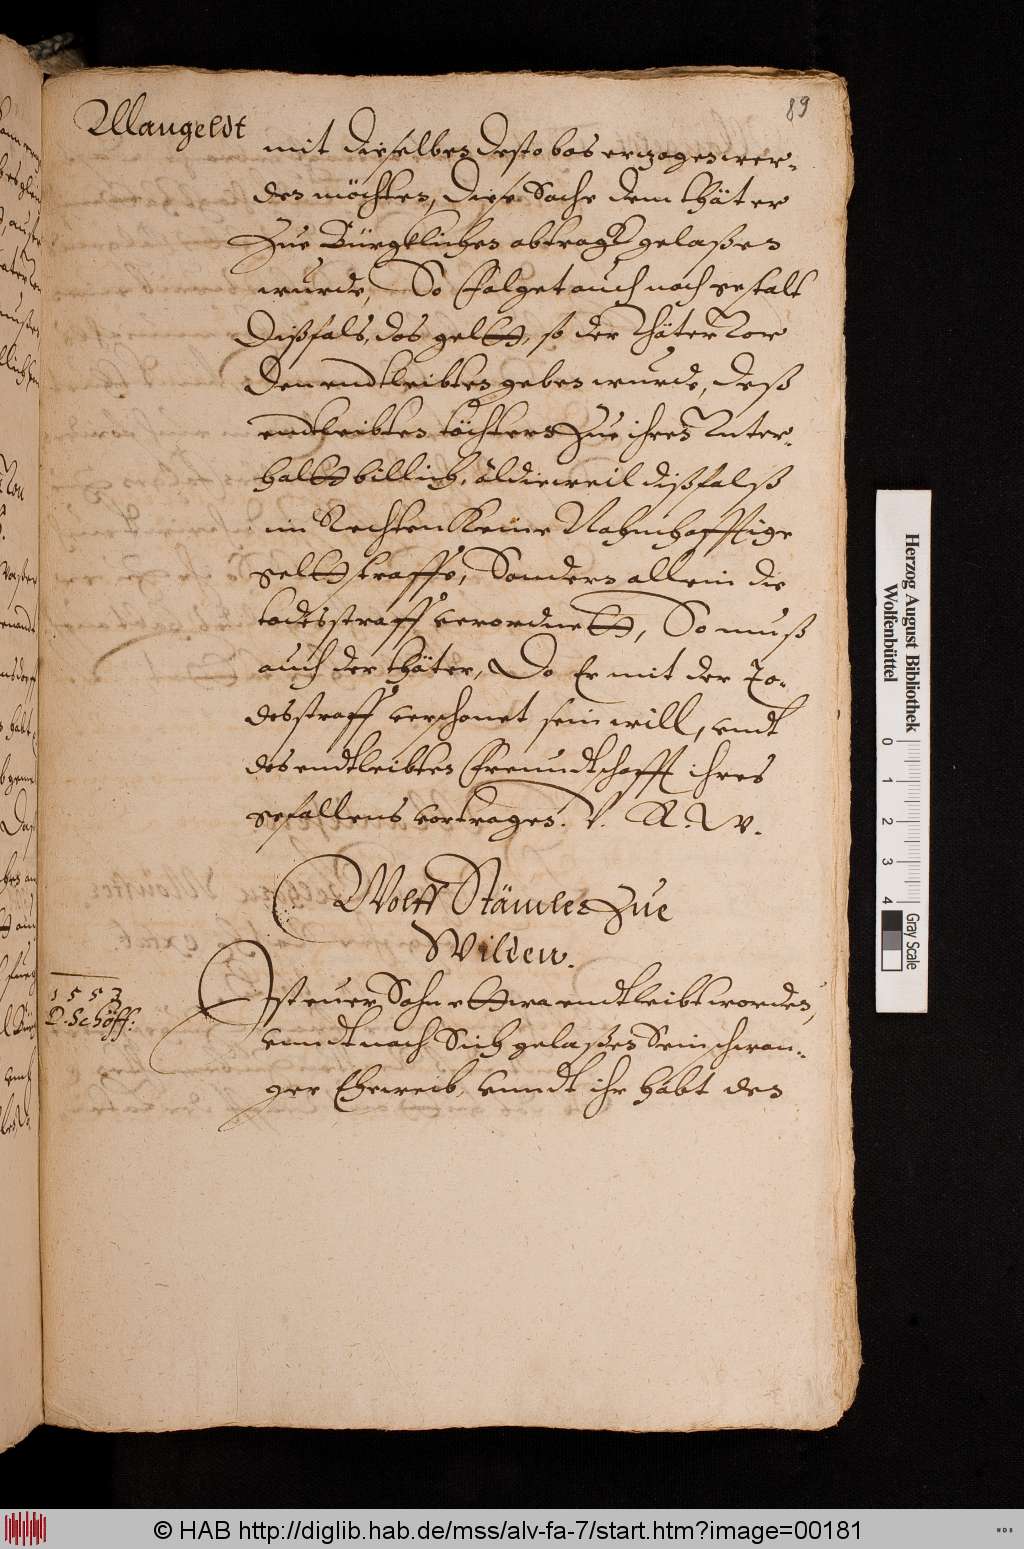 89
Mangeldt
mit dieselben desto bas erzogen wer-
den möchten, diese Sache dem thäter
Zue Bürgklichen abtragk gelaßen
wurde, So folget auch nach gestalt
Dißfals, das geldt, so der thäter vor
Den endtleibten geben wurde, deß
endtleibten töchtern Zue ihren Unter-
haldt billich, aldieweil dißfalß
im Rechten Keine Nahmhafftige
geldtstraffe, Sondern allein die
todesstraff verordnett, So muß
auch der thäter, Do Er mit der To-
desstraff verschonet sein will, undt
des endtleibten Freundtschafft ihres
gefallens vertragen. V. R. W.
Wolff Stämler Zue
Wilden.
1553
D. Schöff:
Ist euer Sohn ettwa endtleibt worden,
unndt nach Sich gelaßen Sein schwan-
ger Eheweib, unndt ihr habt den
Herzog August Bibliothek
Wolfenbüttel
0 1 2 3 4
Gray Scale
© HAB http://diglib.hab.de/mss/alv-fa-7/start.htm?image=00181